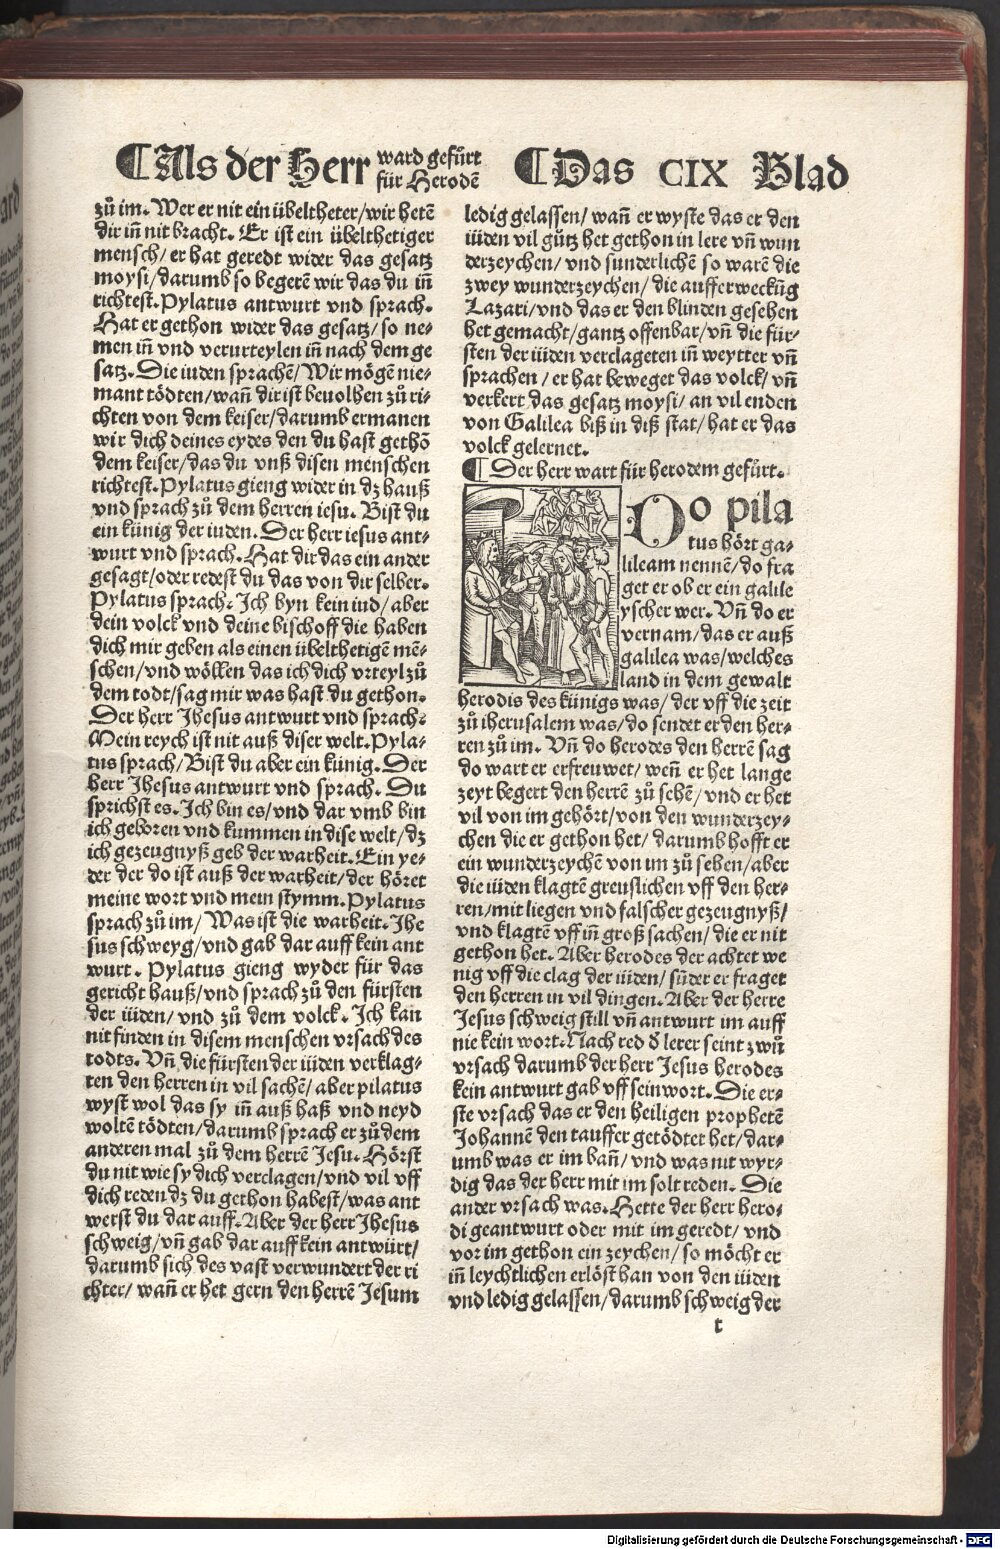 ¶Als der Herr ward gefuͤrt
fuͤr Herodē
¶Das CIX Blad
zuͦ im. Wer er nit ein uͤbeltheter/wir hetē
dir iñ nit bracht. Er ist ein uͤbelthetiger
mensch/er hat geredt wider das gesatz
moysi/darumb so begerē wir das du iñ
richtest. Pylatus antwurt vnd sprach.
Hat er gethon wider das gesatz/so ne⸗
men iñ vnd verurteylen iñ nach dem ge
satz. Die iuden sprachē/Wir moͤgē nie⸗
mant toͤdten/wañ dir ist beuolhen zuͦ ri⸗
chten von dem keiser/darumb ermanen
wir dich deines eydes den du hast gethō
dem keiser/das du vnß disen menschen
richtest. Pylatus gieng wider in dz hauß
vnd sprach zuͦ dem herren iesu. Bist du
ein kuͤnig der iuden. Der herr iesus ant⸗
wurt vnd sprach. Hat dir das ein ander
gesagt/oder redest du das von dir selber.
Pylatus sprach. Ich byn kein iud/aber
dein volck vnd deine bischoff die haben
dich mir geben als einen uͤbelthetigē mē⸗
schen/vnd woͤllen das ich dich vrteyl zuͦ
dem todt/sag mir was hast du gethon.
Der herr Jhesus antwurt vnd sprach.
Mein reych ist nit auß diser welt. Pyla⸗
tus sprach/Bist du aber ein kuͤnig. Der
herr Jhesus antwurt vnd sprach. Du
sprichst es. Ich bin es/vnd dar vmb bin
ich geboren vnd kummen in dise welt/dz
ich gezeugnyß geb der warheit. Ein ye⸗
der der do ist auß der warheit/der hoͤret
meine wort vnd mein stymm. Pylatus
sprach zuͦ im/Was ist die warheit. Jhe
sus schweyg/vnd gab dar auff kein ant
wurt. Pylatus gieng wyder fuͤr das
gericht hauß/vnd sprach zuͦ den fuͤrsten
der iüden/vnd zuͦ dem volck. Ich kan
nit finden in disem menschen vrsach des
todts. Vñ die fuͤrsten der iüden verklag⸗
ten den herren in vil sachē/aber pilatus
wyst wol das sy iñ auß haß vnd neyd
woltē toͤdten/darumb sprach er zuͦ dem
anderen mal zuͦ dem herrē Jesu. Hoͤrst
du nit wie sy dich verclagen/vnd vil vff
dich reden dz du gethon habest/was ant
werst du dar auff. Aber der herr Jhesus
schweig/vñ gab dar auff kein antwuͤrt/
darumb sich des vast verwundert der ri
chter/wañ er het gern den herrē Jesum
ledig gelassen/wañ er wyste das er den
iüden vil guͦtz het gethon in lere vñ wun
derzeychen/vnd sunderlichē so warē die
zwey wunderzeychen/die aufferweckūg
Lazari/vnd das er den blinden gesehen
het gemacht/gantz offenbar/vñ die fuͤr⸗
sten der iüden verclageten iñ weytter vñ
sprachen/er hat beweget das volck/vñ
verkert das gesatz moysi/an vil enden
von Galilea biß in diß stat/hat er das
volck gelernet.
¶Der herr wart fuͤr herodem gefuͤrt.
DO pila
tus hoͤrt ga⸗
lileam nennē/do fra
get er ob er ein galile
yscher wer. Vñ do er
vernam/das er auß
galilea was/welches
land in dem gewalt
herodis des kuͤnigs was/der vff die zeit
zuͦ iherusalem was/do sendet er den her⸗
ren zuͦ im. Vñ do herodes den herrē sag
do wart er erfreuwet/weñ er het lange
zeyt begert den herrē zuͦ sehē/vnd er het
vil von im gehoͤrt/von den wunderzey⸗
chen die er gethon het/darumb hofft er
ein wunderzeychē von im zuͦ sehen/aber
die iüden klagtē greuslichen vff den her⸗
ren/mit liegen vnd falscher gezeugnyß/
vnd klagtē vff iñ groß sachen/die er nit
gethon het. Aber herodes der achtet we
nig vff die clag der iüden/sūder er fraget
den herren in vil dingen. Aber der herre
Jesus schweig still vñ antwurt im auff
nie kein wort. Nach red d lerer seint zwuͦ
vrsach darumb der herr Jesus herodes
kein antwurt gab vff sein wort. Die er⸗
ste vrsach das er den heiligen prophetē
Johannē den tauffer getoͤdtet het/dar⸗
umb was er im bañ/vnd was nit wyr⸗
dig das der herr mit im solt reden. Die
ander vrsach was. Hette der herr hero⸗
di geantwurt oder mit im geredt/vnd
vor im gethon ein zeychen/so moͤcht er
iñ leychtlichen erloͤst han von den iüden
vnd ledig gelassen/darumb schweig der
t
Digitalisierung gefördert durch die Deutsche Forschungsgemeinschaft - DFG